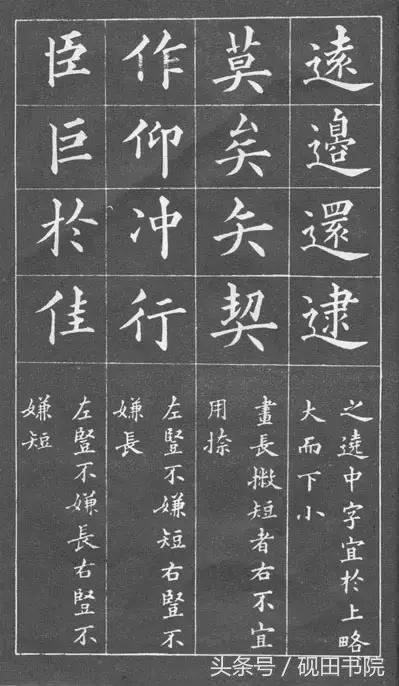 遠邊還逮
之遶中字宜於上略
大而下小
莫矣矢契
畫長撇短者右不宜
用捺
作仰冲行
左豎不嫌短右豎不
嫌長
臣巨於佳
左豎不嫌長右豎不
嫌短
头条号/砚田书院